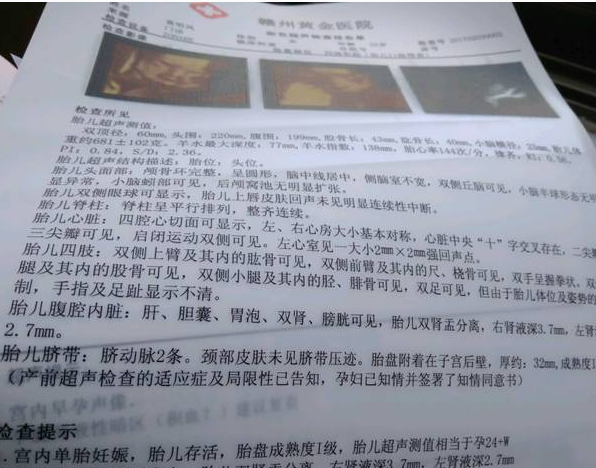 赣州黄金医院
检查设备
检查影像
检查所见
胎儿超声测值:
双顶径: 60mm, 头围: 220mm, 腹围: 199mm, 股骨长: 43mm, 肱骨长: 40mm, 小脑横径: 胎儿体
重约681±102克. 羊水最大深度: 77mm, 羊水指数: 138mm, 胎心率144次/分, 脐
PI: 0.84, S/D: 2.36.
胎儿超声结构描述: 胎位: 头位。
胎儿头面部: 颅骨环完整, 呈圆形, 脑中线居中, 侧脑室不宽, 双侧丘脑可见, 小脑半球形态无明
显异常, 小脑蚓部可见, 后颅窝池无明显扩张。
胎儿双侧眼球可显示, 胎儿上唇皮肤回声未见明显连续性中断。
胎儿脊柱: 脊柱呈平行排列, 整齐连续。
胎儿心脏: 四腔心切面可显示, 左、右心房大小基本对称, 心脏中央“十”字交叉存在, 二尖
三尖瓣可见, 启闭运动双侧可见。左心室见一大小2mm×2mm强回声点。
胎儿四肢: 双侧上臂及其内的肱骨可见, 双侧前臂及其内的尺、桡骨可见, 双手呈握拳状, 双
腿及其内的股骨可见, 双侧小腿及其内的胫、腓骨可见, 双足可见, 但由于胎儿体位及姿势的
制, 手指及足趾显示不清。
胎儿腹腔内脏: 肝、胆囊、胃泡、双肾、膀胱可见, 胎儿双肾盂分离, 右肾液深3.7mm, 左肾
2.7mm。
胎儿脐带: 脐动脉2条。颈部皮肤未见脐带压迹。胎盘附着在子宫后壁, 厚约: 32mm, 成熟度I
(产前超声检查的适应症及局限性已告知, 孕妇已知情并签署了知情同意书)
宫内早孕声像。
检查提示
.宫内单胎妊娠, 胎儿存活, 胎盘成熟度I级, 胎儿超声测值相当于孕24+W
胎儿双肾盂分离, 右肾液深3.7mm, 左肾液深2.7mm